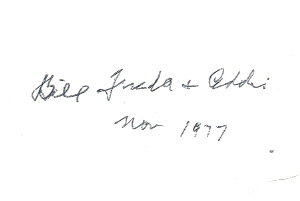 Bill Freda + Eddie
Nov 1977